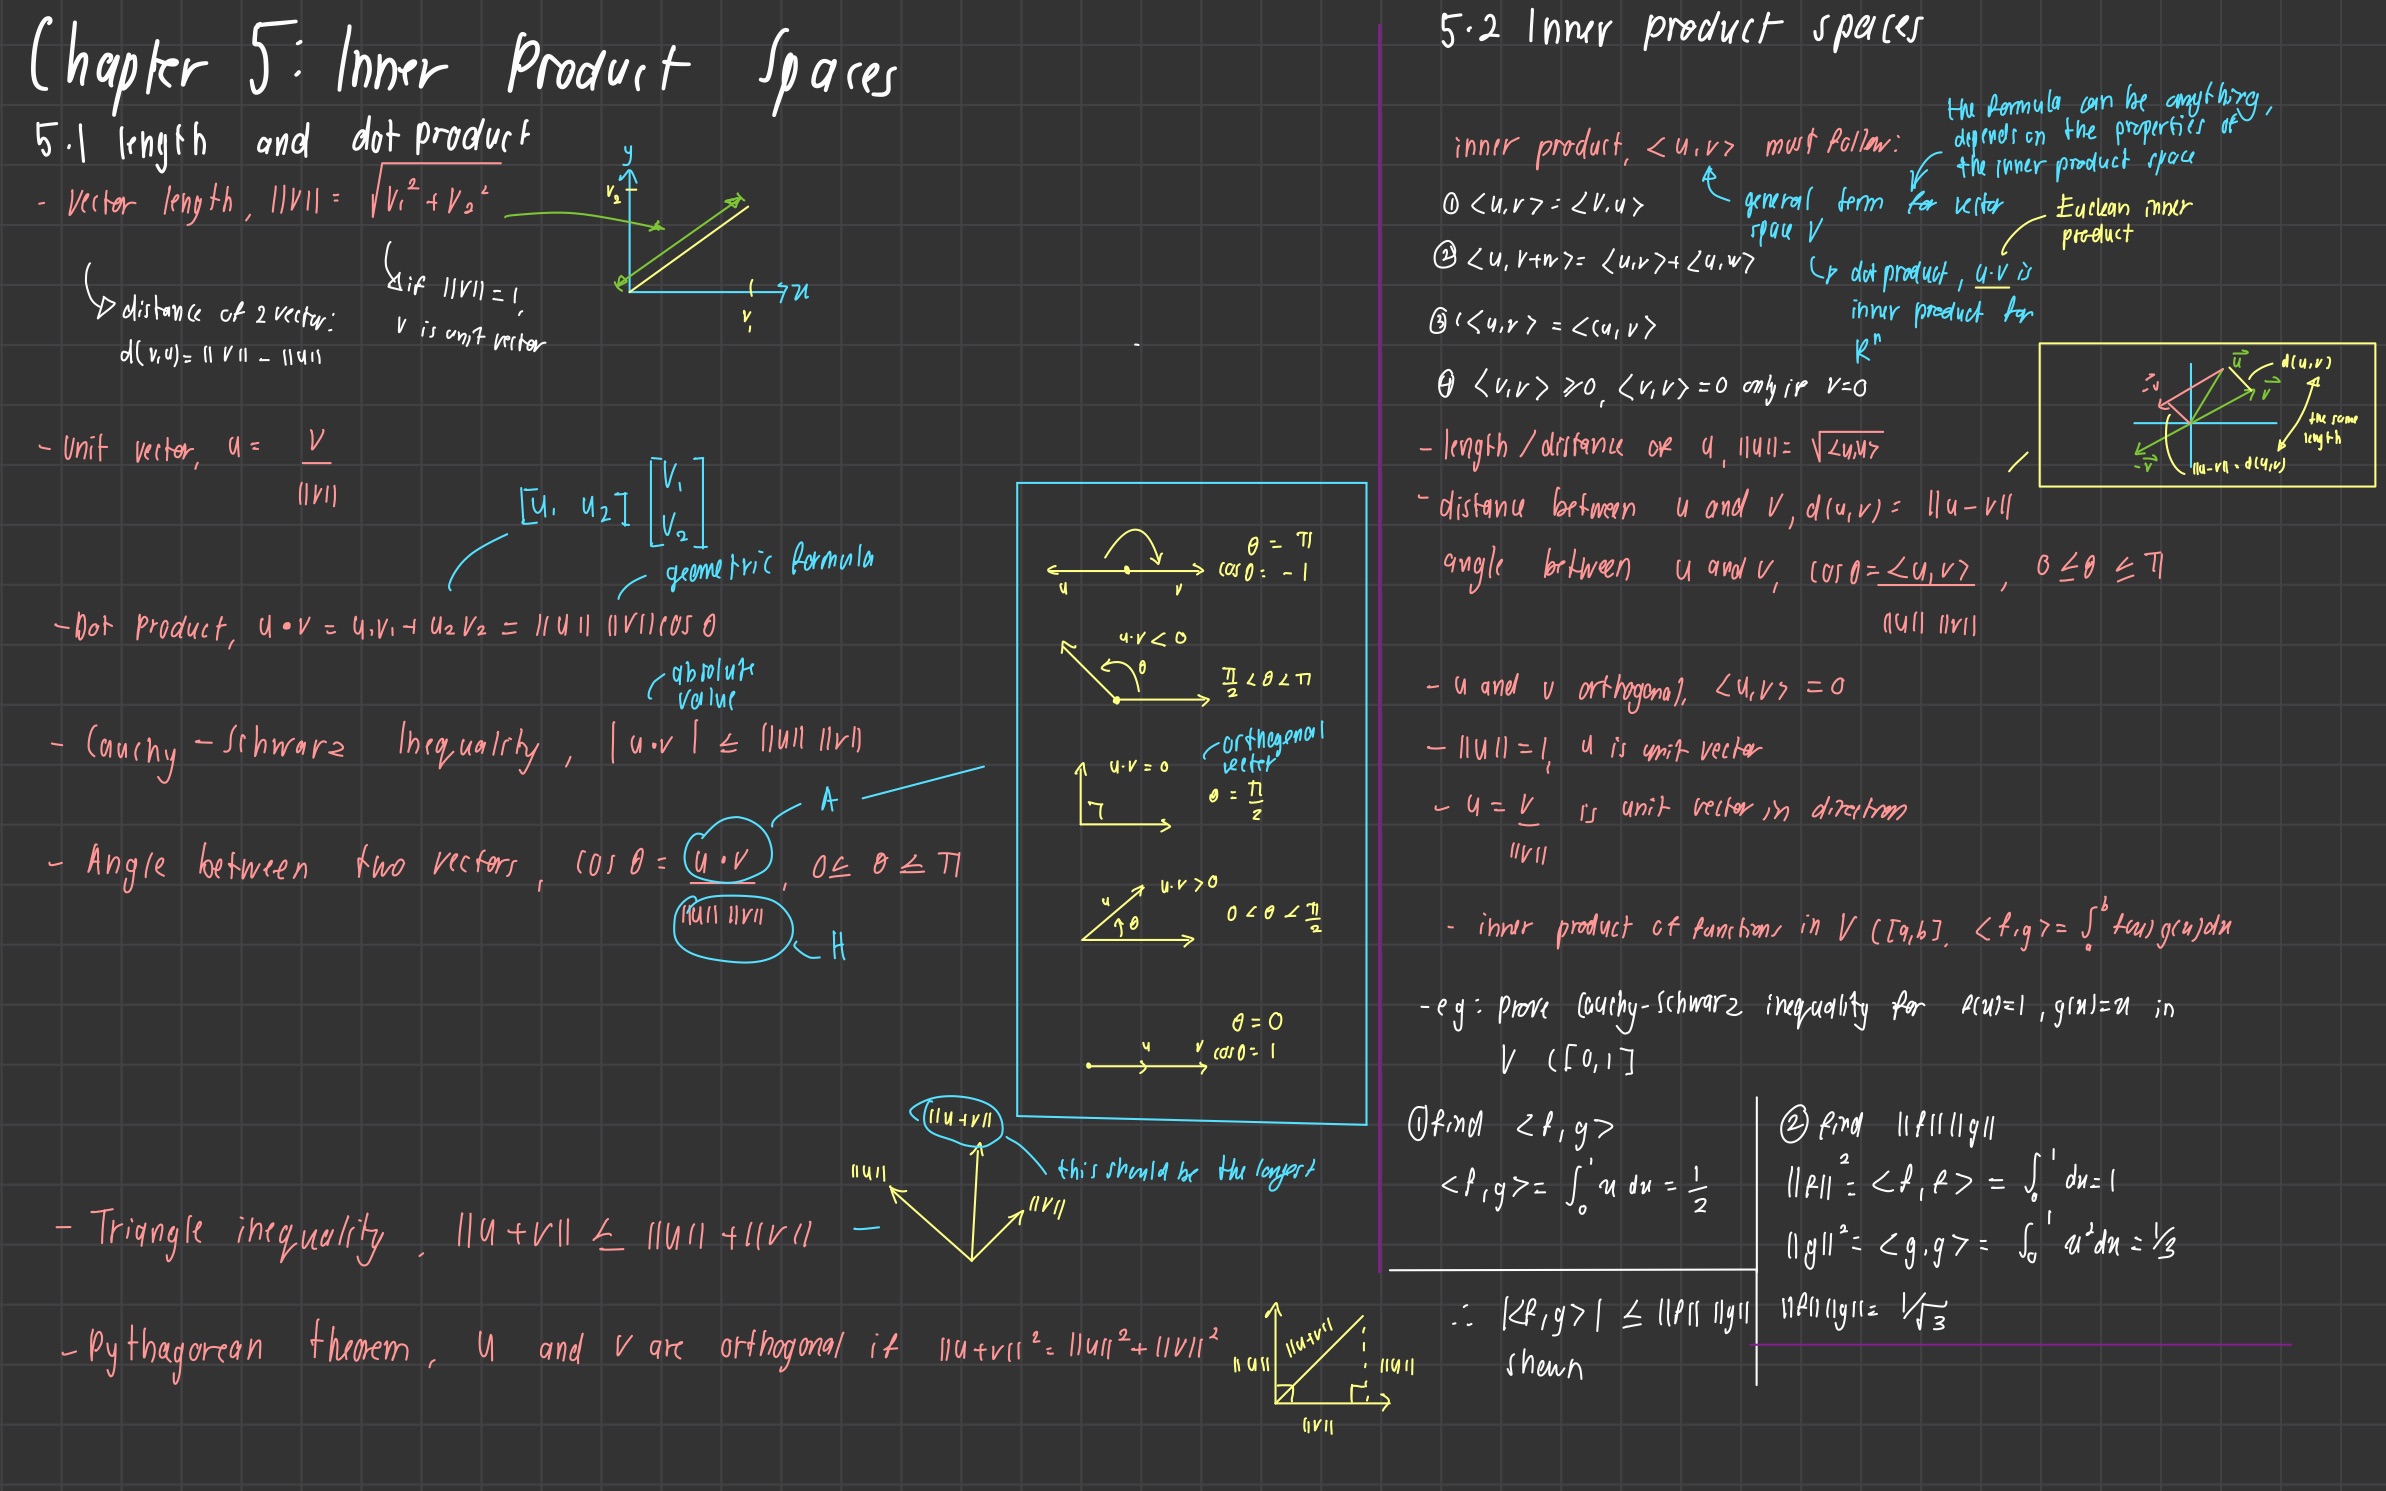 Chapter 5: Inner Product Spaces
5.1 length and dot product
- vector length, ||v|| = √v₁² + v₂²
y
v₂
x
v₁
distance of 2 vector:
d(v,u) = ||v|| - ||u||
if ||v|| = 1,
v is unit vector
- unit vector, u = v / ||v||
[u₁ u₂] [v₁ v₂]
geometric formula
- Dot Product, u • v = u₁v₁ + u₂v₂ = ||u|| ||v|| cos θ
absolute
value
- Cauchy - Schwarz Inequality, |u•v| ≤ ||u|| ||v||
A
- Angle between two vectors, cos θ = u • v / ||u|| ||v||, 0 ≤ θ ≤ π
H
u v
θ = π
cos θ = -1
u•v < 0
θ
π/2 < θ < π
orthogonal
vector
u•v = 0
θ = π/2
u•v > 0
u
θ
0 < θ < π/2
θ = 0
cos θ = 1
u v
||u+v||
this should be the longest
||u||
||v||
- Triangle inequality, ||u+v|| ≤ ||u|| + ||v||
- Pythagorean theorem, u and v are orthogonal if ||u+v||² = ||u||² + ||v||²
||u||
||u+v||
||u||
||v||
5.2 Inner product spaces
the formula can be anything,
depends on the properties of
the inner product space
inner product, <u,v> must follow:
general term for vector
space V
① <u,v> = <v,u>
Euclean inner
product
② <u, v+w> = <u,v> + <u,w>
dot product, u•v is
inner product for
Rⁿ
③ c<u,v> = <cu,v>
④ <v,v> ≥ 0, <v,v> = 0 only if v=0
u
d(u,v)
v
-v
the same
length
-v
||u-v|| = d(u,v)
- length / distance of u, ||u|| = √<u,u>
- distance between u and v, d(u,v) = ||u-v||
angle between u and v, cos θ = <u,v> / ||u|| ||v||, 0 ≤ θ ≤ π
- u and v orthogonal, <u,v> = 0
- ||u|| = 1, u is unit vector
- u = v / ||v|| is unit vector in direction
- inner product of functions in V C[a,b], <f,g> = ∫ₐᵇ f(x)g(x)dx
- eg: prove Cauchy-Schwarz inequality for f(x)=1, g(x)=x in
V C[0,1]
① find <f,g>
<f,g> = ∫₀¹ x dx = 1/2
② find ||f|| ||g||
||f||² = <f,f> = ∫₀¹ dx = 1
||g||² = <g,g> = ∫₀¹ x²dx = 1/3
||f|| ||g|| = 1/√3
∴ |<f,g>| ≤ ||f|| ||g||
shown